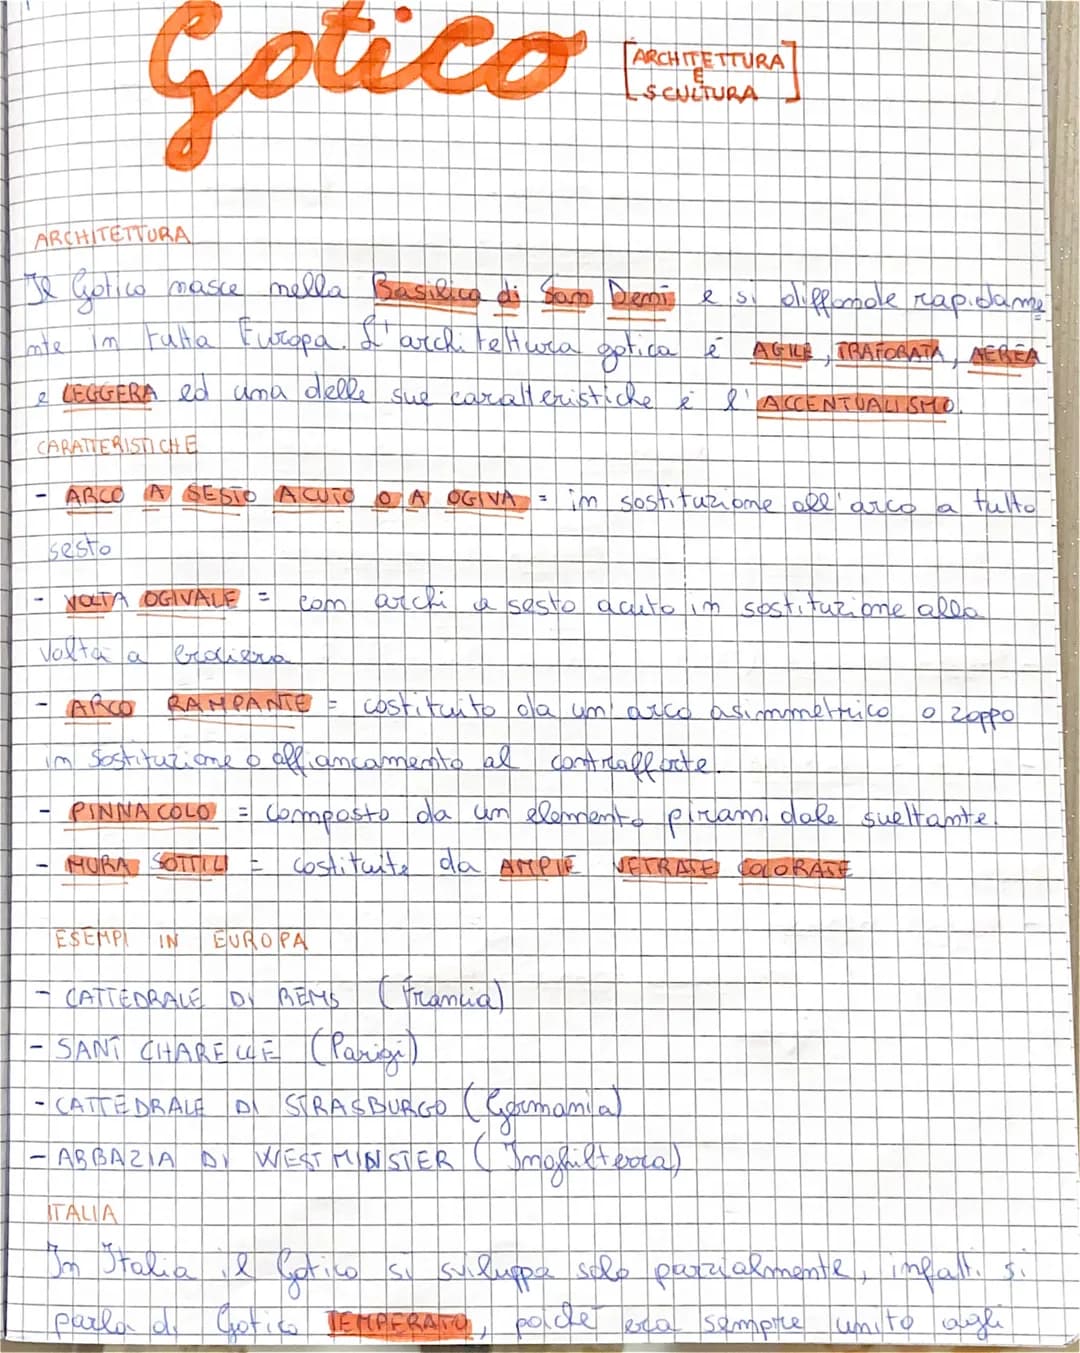 Gotico
[ARCHITETTURA
E
SCULTURA]
ARCHITETTURA
Il Gotico nasce nella Basilica di San Deni e si diffonde rapidame
nte in tutta Europa. L'architettura gotica è AGILE, TRAFORATA, AEREA
e LEGGERA ed una delle sue caratteristiche è l'ACCENTUALISMO.
CARATTERISTICHE
- ARCO A SESTO ACUTO O A OGIVA = in sostituzione all'arco a tutto
sesto
- VOLTA OGIVALE = con archi a sesto acuto in sostituzione alla
volta a crociera
- ARCO RAMPANTE = costituito da un arco asimmetrico o zoppo
in sostituzione o affiancamento al contrafforte.
- PINNACOLO = composto da un elemento piramidale sveltante.
- MURA SOTTILI = costituite da AMPIE VETRATE COLORATE
ESEMPI IN EUROPA
- CATTEDRALE DI REMS (Francia)
- SANT CHARELLE (Parigi)
- CATTEDRALE DI STRASBURGO (Germania)
- ABBAZIA DI WESTMINSTER (Inghilterra)
ITALIA
In Italia il Gotico si sviluppa solo parzialmente, infatti si
parla di Gotico TEMPERATO, poiché era sempre unito agli